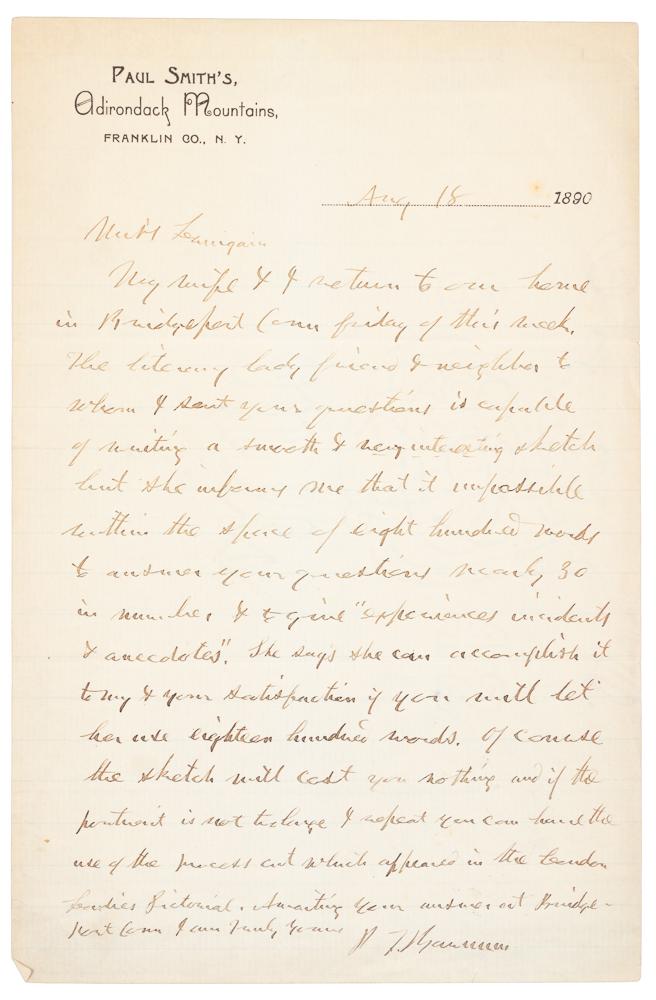 PAUL SMITH'S,
Adirondack Mountains,
FRANKLIN CO., N. Y.
Aug 18 1890
My wife & I return to our home
in Bridgeport Conn friday of this week.
The literary lady friend & neighbor to
whom I sent your questions is capable
of writing a smooth & very interesting sketch
but she informs me that it impossible
within the space of eight hundred words
to answer your questions nearly 30
in number, & to give "experiences incidents
& anecdotes". She says she can accomplish it
to my & your satisfaction if you will let
her use eighteen hundred words. Of course
the sketch will cost you nothing and if the
portrait is not too large I repeat you can have the
use of the process cut which appeared in the London
Ladies Pictorial. Awaiting your answer at Bridge-
port Conn I am Truly Yours P. T. Barnum